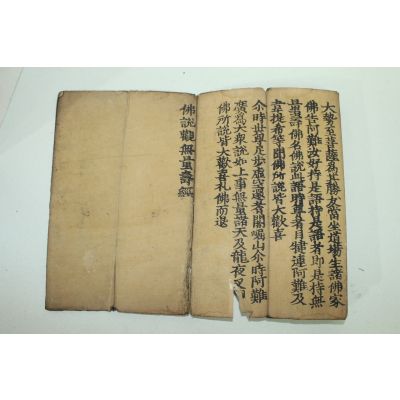 大勢至菩薩爲其勝友當坐道場生諸佛家
佛告阿難汝好持是語持是語者即是持無
量壽佛名佛說此語時尊者目犍連阿難及
韋提希等聞佛所說皆大歡喜
尒時世尊足步虛空還耆闍崛山尒時阿難
廣爲大衆說如上事無量諸天及龍夜叉聞
佛所說皆大歡喜礼佛而退
佛說觀無量壽經